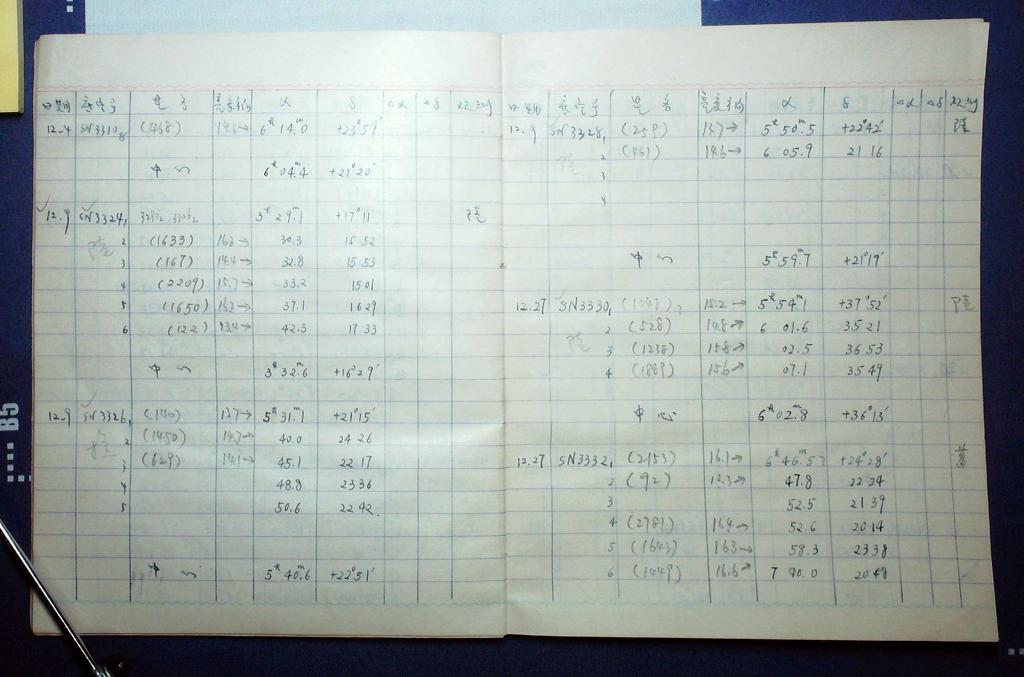 日期 星名 亮度 α δ Δα Δδ
12.4 SN3310 (468) 14.6→ 6ʰ 14ᵐ.0 +23°51′
中心 6ʰ 04ᵐ.4 +21°20′
12.9 SN3324, 1 3ʰ 29ᵐ.1 +17°11′ 陆
2 (1633) 16.2→ 30.3 15 52
3 (167) 14.4→ 32.8 15 53
4 (2209) 15.7→ 33.2 15 01
5 (1650) 16.2→ 37.1 16 29
6 (122) 13.4→ 42.3 17 33
陆
中心 3ʰ 32ᵐ.6 +16°29′
12.9 SN3326, 1 (140) 13.7→ 5ʰ 31ᵐ.1 +21°15′
2 (1450) 14.7→ 40.0 24 26
3 (629) 14.1→ 45.1 22 17
4 48.8 23 36
5 50.6 22 42
中心 5ʰ 40ᵐ.6 +22°51′
日期 星名 亮度 α δ Δα Δδ
12.9 SN3328, 1 (259) 13.7→ 5ʰ 50ᵐ.5 +22°42′ 陆
2 (461) 14.6→ 6 05.9 21 16
3
4
中心 5ʰ 59ᵐ.7 +21°19′
12.27 SN3330, 1 (1048)? 15.2→ 5ʰ 54ᵐ.1 +37°52′ 陆
2 (528) 14.8→ 6 01.6 35 21
3 (1238) 15.8→ 02.5 36 53
4 (1869) 15.6→ 07.1 35 49
中心 6ʰ 02ᵐ.8 +36°13′
12.27 SN3332, 1 (2153) 16.1→ 6ʰ 46ᵐ.5? +24°28′
2 (92) 12.3→ 47.8 22 24
3 52.5 21 39
4 (2781) 16.4→ 52.6 20 14
5 (1643) 16.3→ 58.3 23 38
6 (1449) 16.6→ 7 00.0 20 48
B5